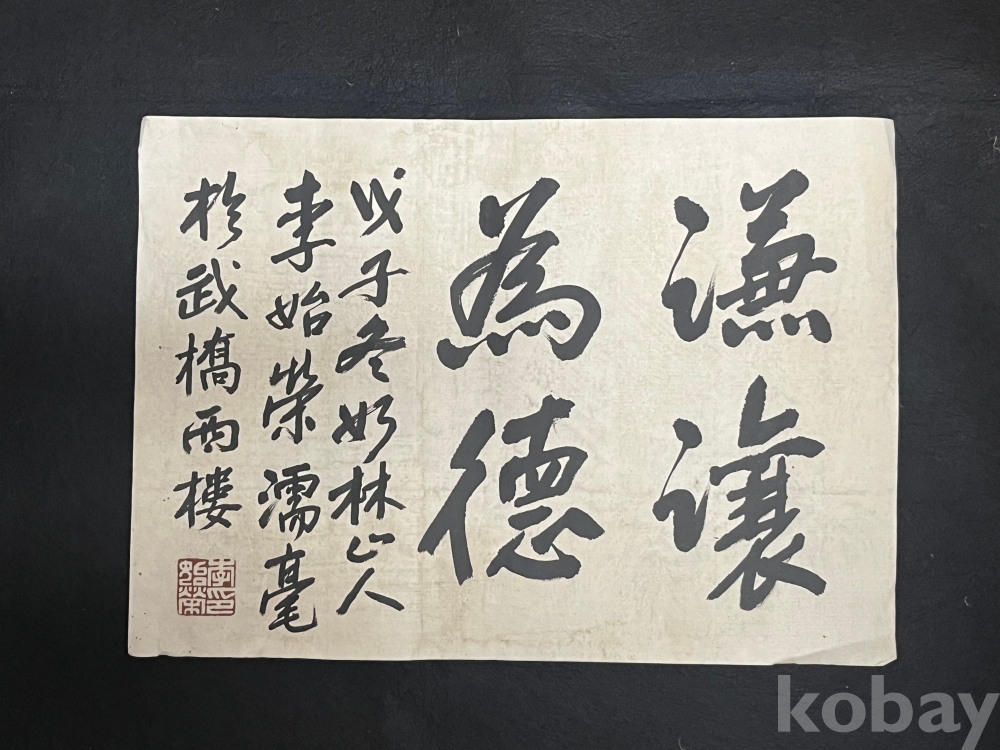 謙讓
為德
戊子冬妙林山人
李始榮濡毫
於武橋西樓
李印
始榮
kobay